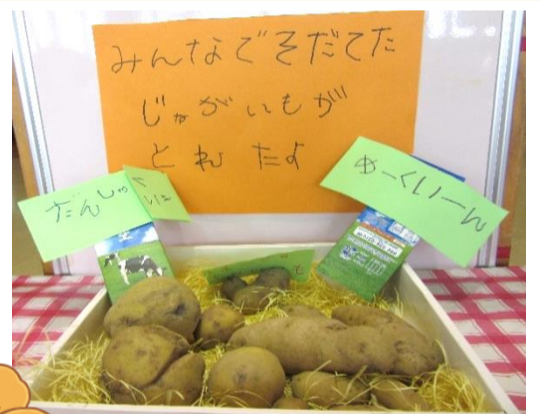 みんなでそだてた
じゃがいもが
とれたよ
だんしゃく
めーくいーん